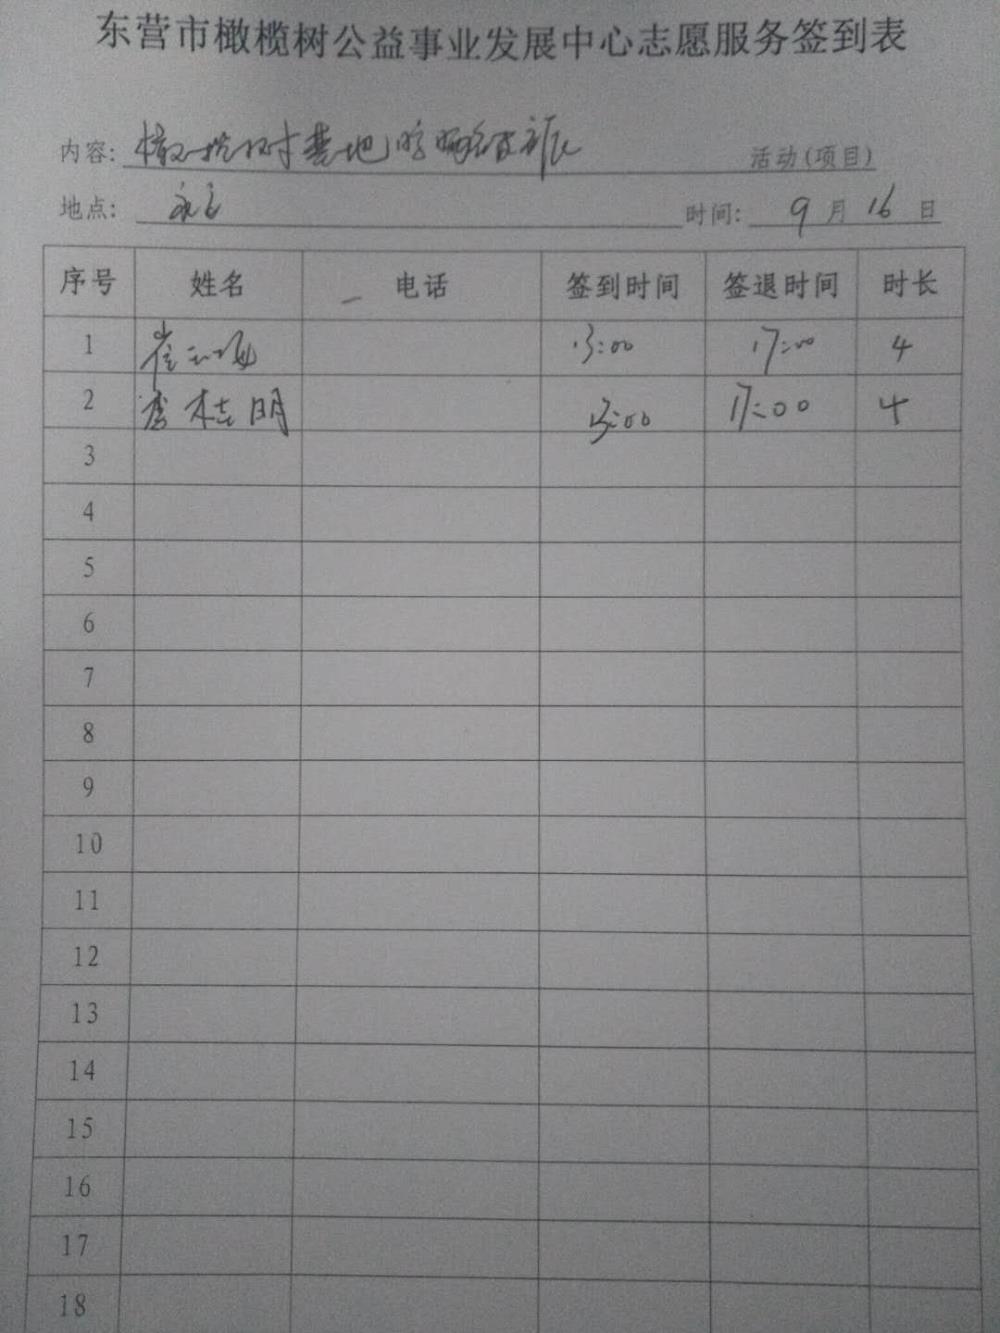 东营市橄榄树公益事业发展中心志愿服务签到表
内容: 橄榄树基地 活动(项目)
地点: 时间: 9 月 16 日
序号 姓名 电话 签到时间 签退时间 时长
1 崔 13:00 17:00 4
2 李桂明 13:00 17:00 4
3
4
5
6
7
8
9
10
11
12
13
14
15
16
17
18